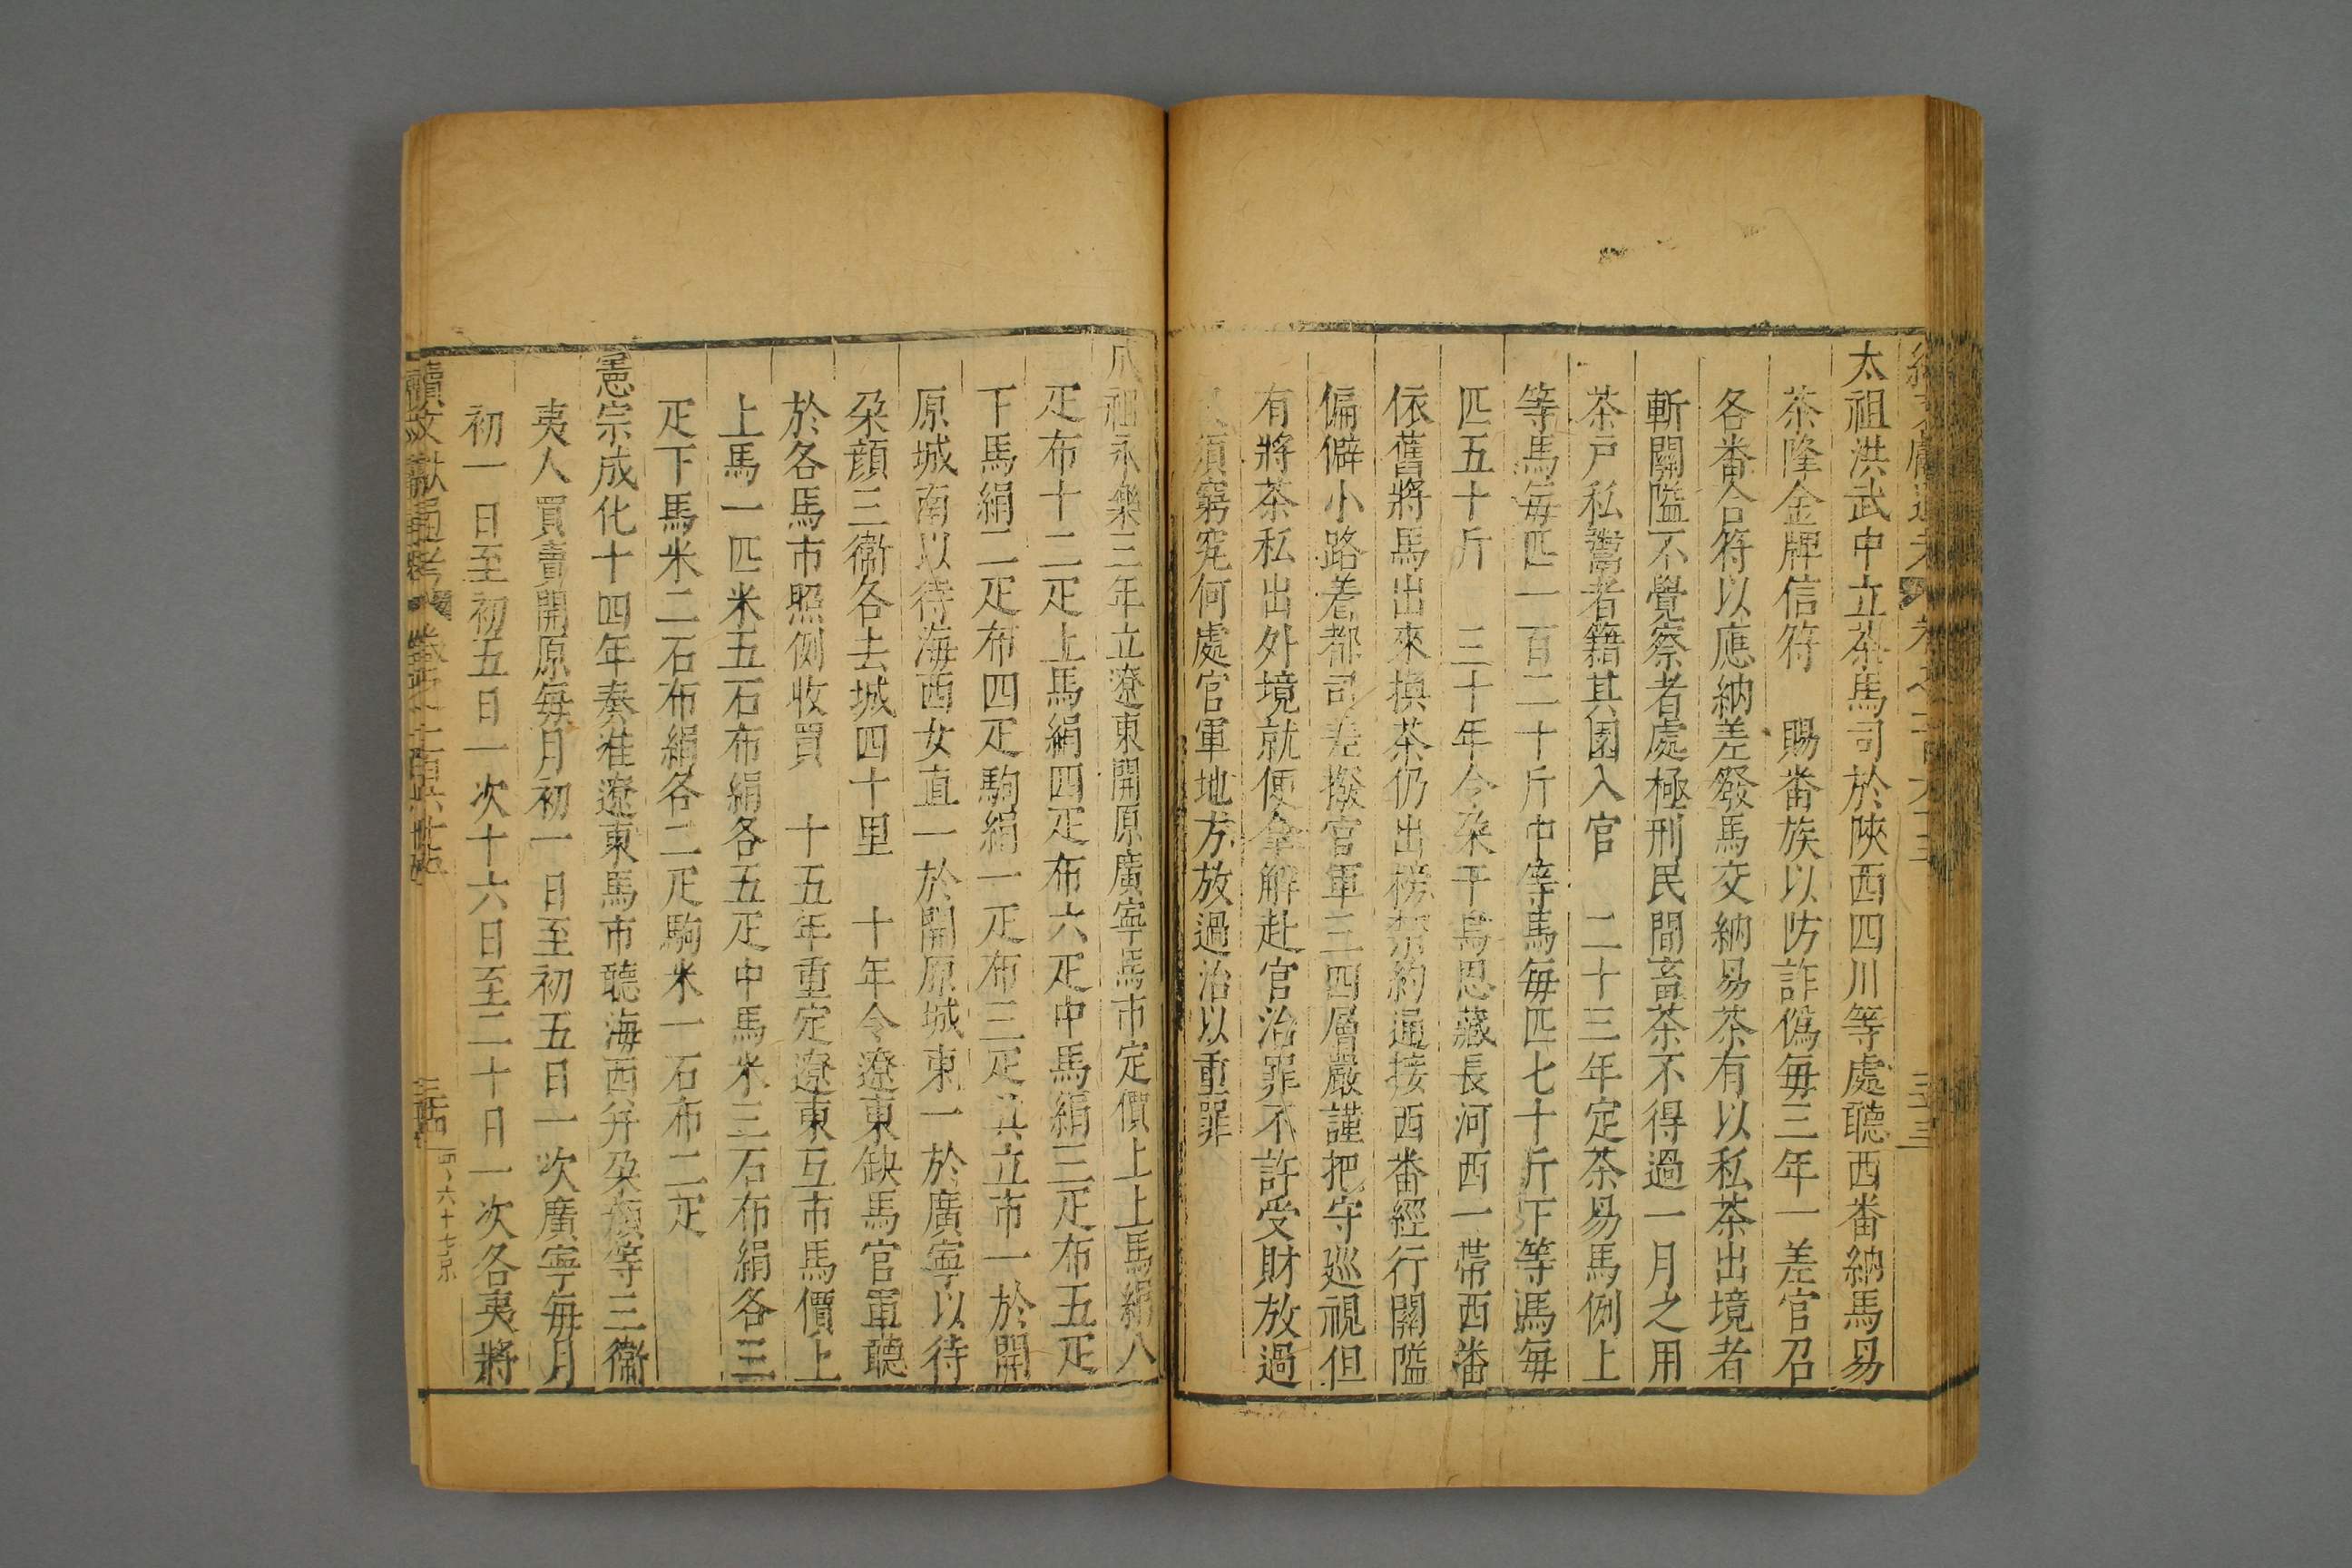 太祖洪武中立茶馬司於陝西四川等處聽西番納馬易
茶降金牌信符 賜番族以防詐僞每三年一差官召
各番合符以應納差發馬交納易茶有以私茶出境者
斬關隘不覺察者處極刑民間畜茶不得過一月之用
茶戶私鬻者籍其園入官 二十三年定茶易馬例上
等馬每匹一百二十斤中等馬每匹七十斤下等馬每
匹五十斤 三十年令朶干烏思藏長河西一帶西番
依舊將馬出來換茶仍出榜禁約通接西番經行關隘
偏僻小路着都司差撥官軍三四層嚴謹把守巡視但
有將茶私出外境就便拿解赴官治罪不許受財放過
須窮究何處官軍地方放過治以重罪
祖永樂三年立遼東開原廣寧馬市定價上上馬絹八
疋布十二疋上馬絹四疋布六疋中馬絹三疋布五疋
下馬絹二疋布四疋駒絹一疋布三疋 立市一於開
原城南以待海西女直一於開原城東一於廣寧以待
朶顏三衞各去城四十里 十年令遼東缺馬官軍聽
於各馬市照例收買 十五年重定遼東互市馬價上
上馬一匹米五石布絹各五疋中馬米三石布絹各三
疋下馬米二石布絹各二疋駒米一石布二疋
憲宗成化十四年奏准遼東馬市聽海西并朶顏等三衞
夷人買賣開原每月初一日至初五日一次廣寧每月
初一日至初五日一次十六日至二十日一次各夷將
續文獻通考